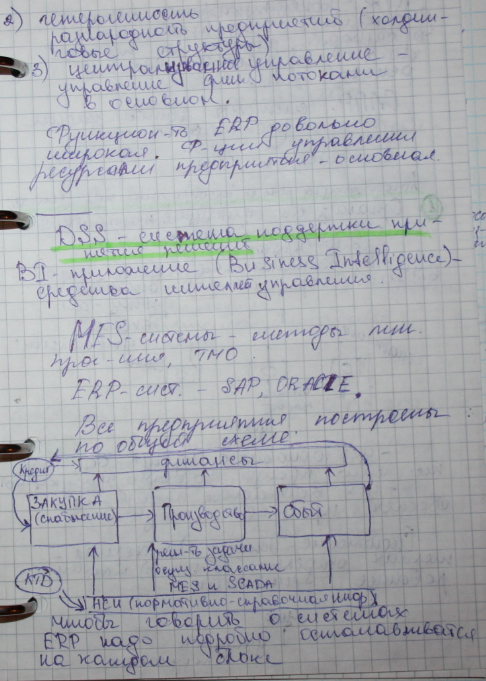 2) гетерогенность
разнародность предприятий (холдин-
говые структуры)
3) централизованное управление -
управление фин потоками
в основном.
Функцион-ть ERP довольно
широкая. Ф-ции управления
ресурсами предприятия - основная.
DSS - система поддержки при-
нятия решений
BI - приложение (Business Intelligence) -
средства интеллект управления.
MES-системы - методы
ТМО
ERP-сист. - SAP, ORACLE.
Все предприятия построены
по общей схеме:
кредит
финансы
ЗАКУПКА
(снабжение)
Производство
Сбыт
реш-ть задачи
классами
MES и SCADA
КТВ
НСИ (нормативно-справочная инф)
чтобы говорить о системах
ERP надо подробно останавливатся
на каждом блоке